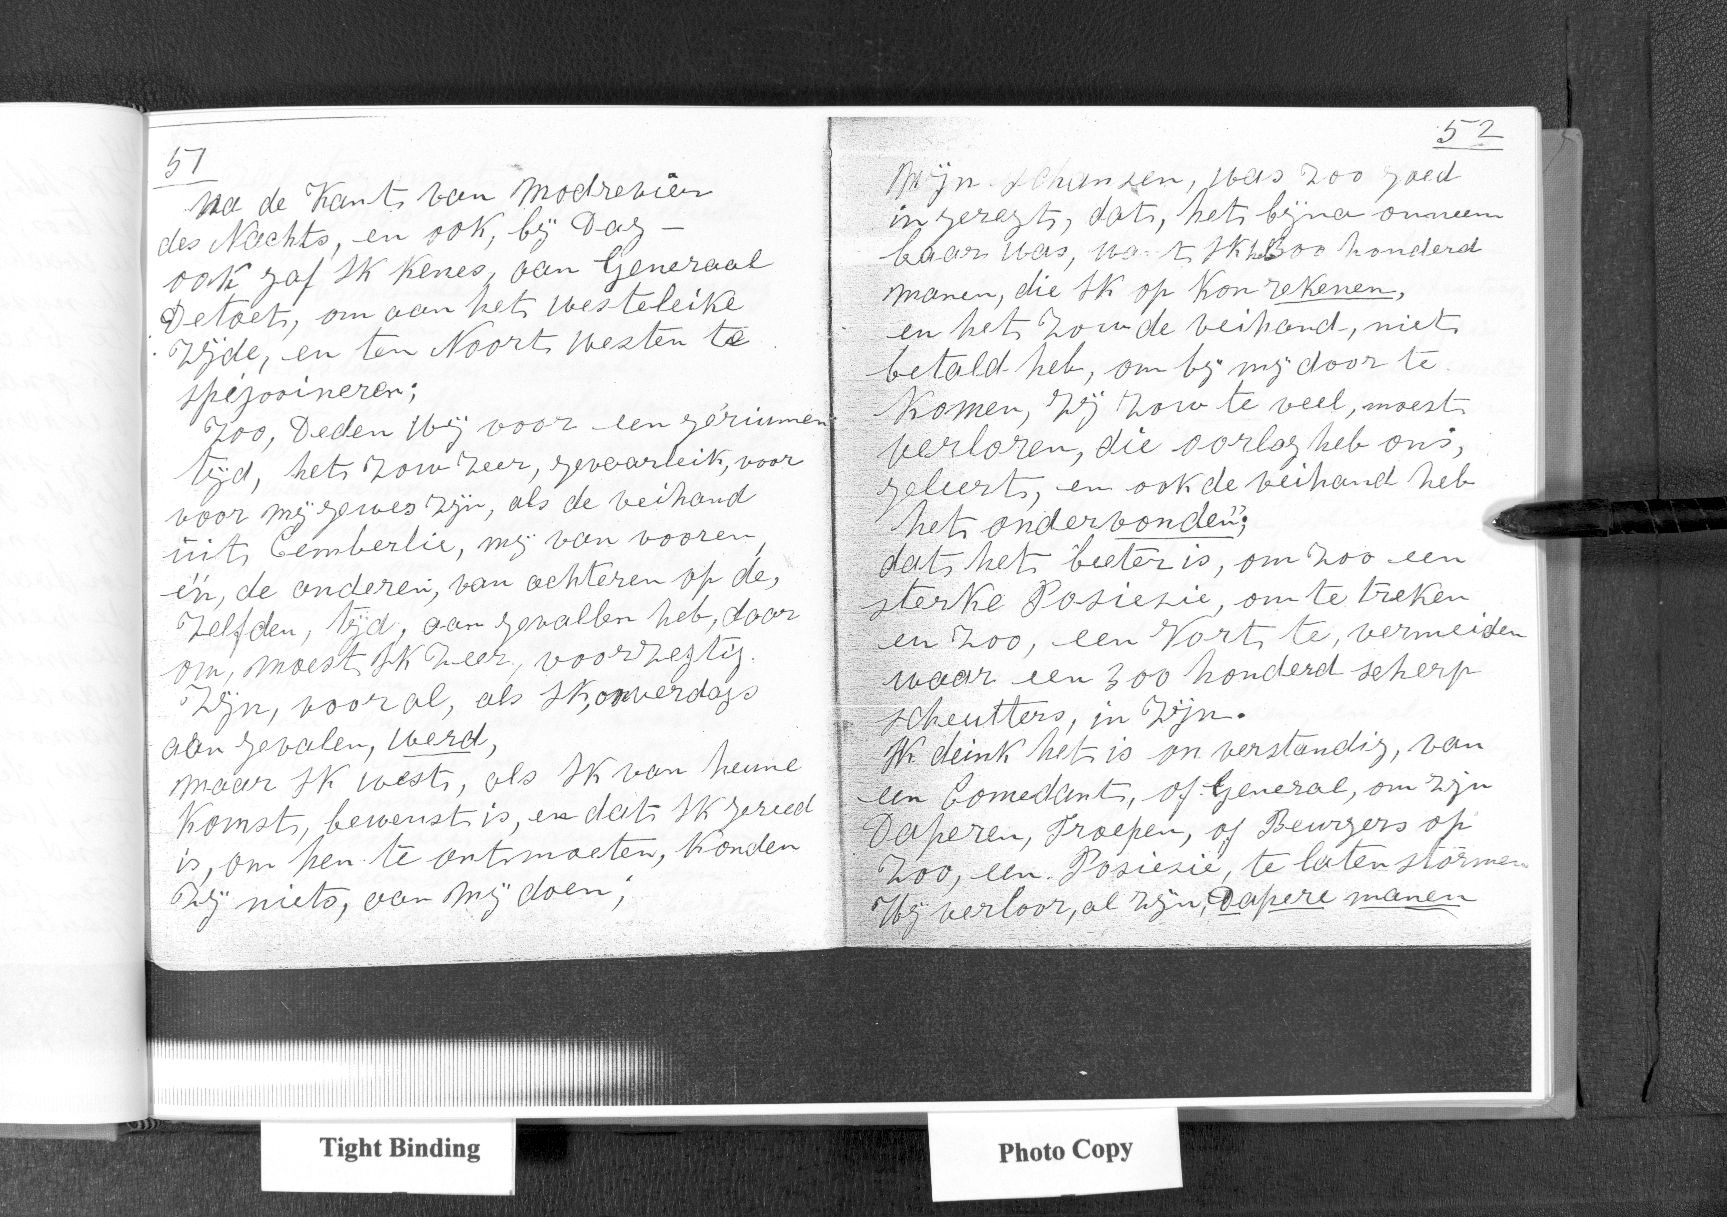 51
Na de Kant van Modrevier
des Nachts, en ook, bij Dag —
ook gaf Ik Kenes, aan Generaal
Detoet, om aan het westeleike
Zijde, en ten Noort Westen te
spejooineren;
Zoo, Deden Wij voor een geriumen
tijd, het zow zeer, gevaarleik, voor
voor mij gewes zijn, als de veihand
uit Cemberlie, mij van vooren,
én, de anderen, van achteren op de,
Zelfden, tijd, aan gevallen heb, daar
om, moest Ik Zeer, voorzegtig.
Zijn, vooral, als Ik, onverdags
aan gevalen, werd,
maar Ik west, als Ik van heune
Komst, bewust is, en dat Ik gereed
is, om hen te ontmoeten, Konden
Zij niets, aan Mij doen;
52
Mijn Schansen, was zoo goed
in geregt, dat, het bijna onneem
baar was, want Ik heb 300 honderd
manen, die Ik op Kon rekenen,
en het zow de veihand, niet
betald heb, om bij mij door te
Komen, Zij zow te veel, moest
verloren, die oorlog heb ons,
geleert, en ook de veihand heb
het ondervonden;
dat het beeter is, om zoo een
sterke Posiesie, om te treken
en zoo, een Vort te, vermeiden
waar een 300 honderd scherp
scheutters, in Zijn.
Ik deink het is on verstandig, van
een Comedant, of General, om zijn
Daperen, Troepen, of Beurgers op
zoo, een Posiesie, te laten stormen
Wij verloor, al zijn, Dapere manen
Tight Binding
Photo Copy